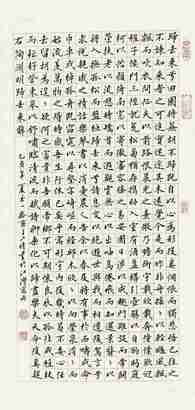 歸去來兮田園將蕪胡不歸既自以心為形役奚惆悵而獨悲悟已往之
不諫知來者之可追實迷途其未遠覺今是而昨非舟遙遙以輕颺風飄
飄而吹衣問征夫以前路恨晨光之熹微乃瞻衡宇載欣載奔僮僕歡迎
稚子候門三徑就荒松菊猶存攜幼入室有酒盈樽引壺觴以自酌眄庭
柯以怡顏倚南窗以寄傲審容膝之易安園日涉以成趣門雖設而常關
策扶老以流憩時矯首而遐觀雲無心以出岫鳥倦飛而知還景翳翳以將
入撫孤松而盤桓歸去來兮請息交以絕游世與我而相違復駕言兮
焉求悅親戚之情話樂琴書以消憂農人告余以春及將有事於西疇或命
巾車或棹孤舟既窈窕以尋壑亦崎嶇而經丘木欣欣以向榮泉涓涓而
始流善萬物之得時感吾生之行休已矣乎寓形宇內復幾時曷不委心任
去留胡為乎遑遑欲何之富貴非吾願帝鄉不可期懷良辰以孤往或植杖
而耘耔登東皋以舒嘯臨清流而賦詩聊乘化以歸盡樂夫天命復奚疑
右陶淵明歸去來辭